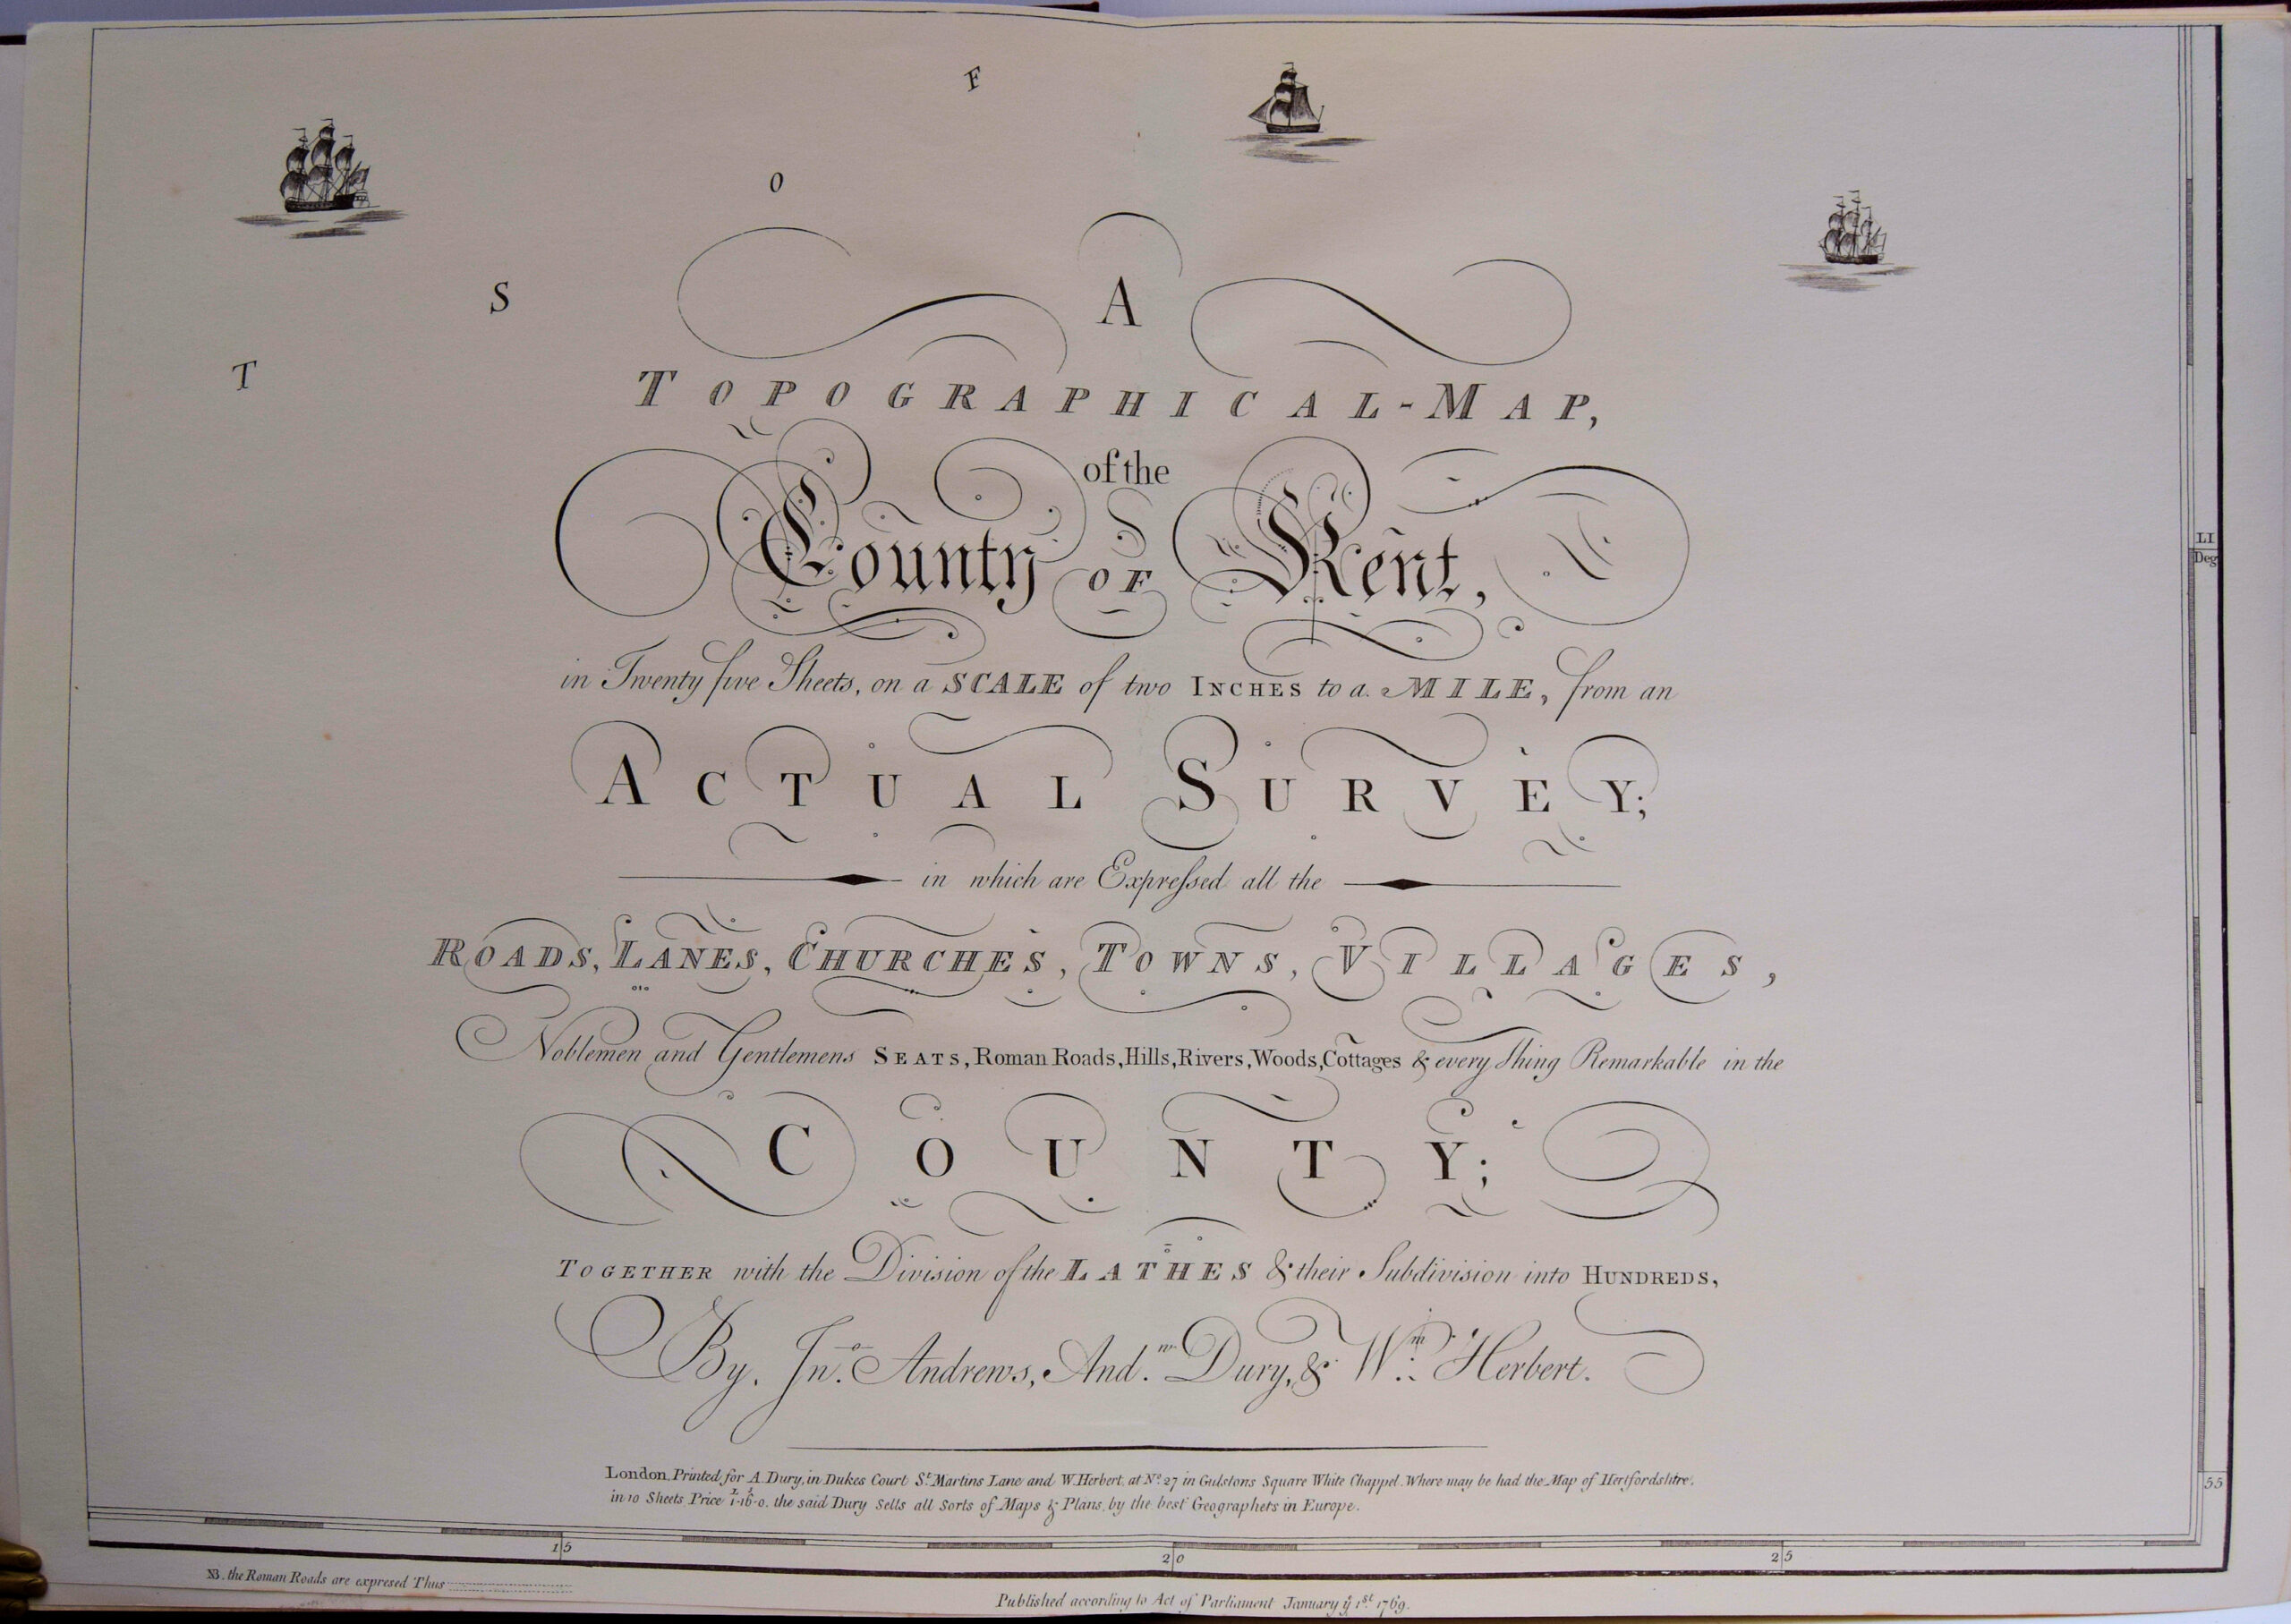 F
O
S
T
A
TOPOGRAPHICAL-MAP,
of the
County OF Kent,
in Twenty five Sheets, on a SCALE of two INCHES to a MILE, from an
ACTUAL SURVEY;
in which are Expreſsed all the
ROADS, LANES, CHURCHES, TOWNS, VILLAGES,
Noblemen and Gentlemens SEATS, Roman Roads, Hills, Rivers, Woods, Cottages & every thing Remarkable in the
COUNTY;
TOGETHER with the Division of the LATHES & their Subdivision into HUNDREDS,
By Jno. Andrews, Andw. Dury, & Wm. Herbert.
London, Printed for A. Dury, in Dukes Court St. Martins Lane and W. Herbert, at No. 27 in Gulstons Square White Chappel. Where may be had the Map of Hertfordshire.
in 10 Sheets Price 1-16-0. the said Dury Sells all Sorts of Maps & Plans, by the best Geographers in Europe.
LI
Deg
55
15
20
25
NB. the Roman Roads are expresed Thus
Published according to Act of Parliament January ye 1st. 1769.